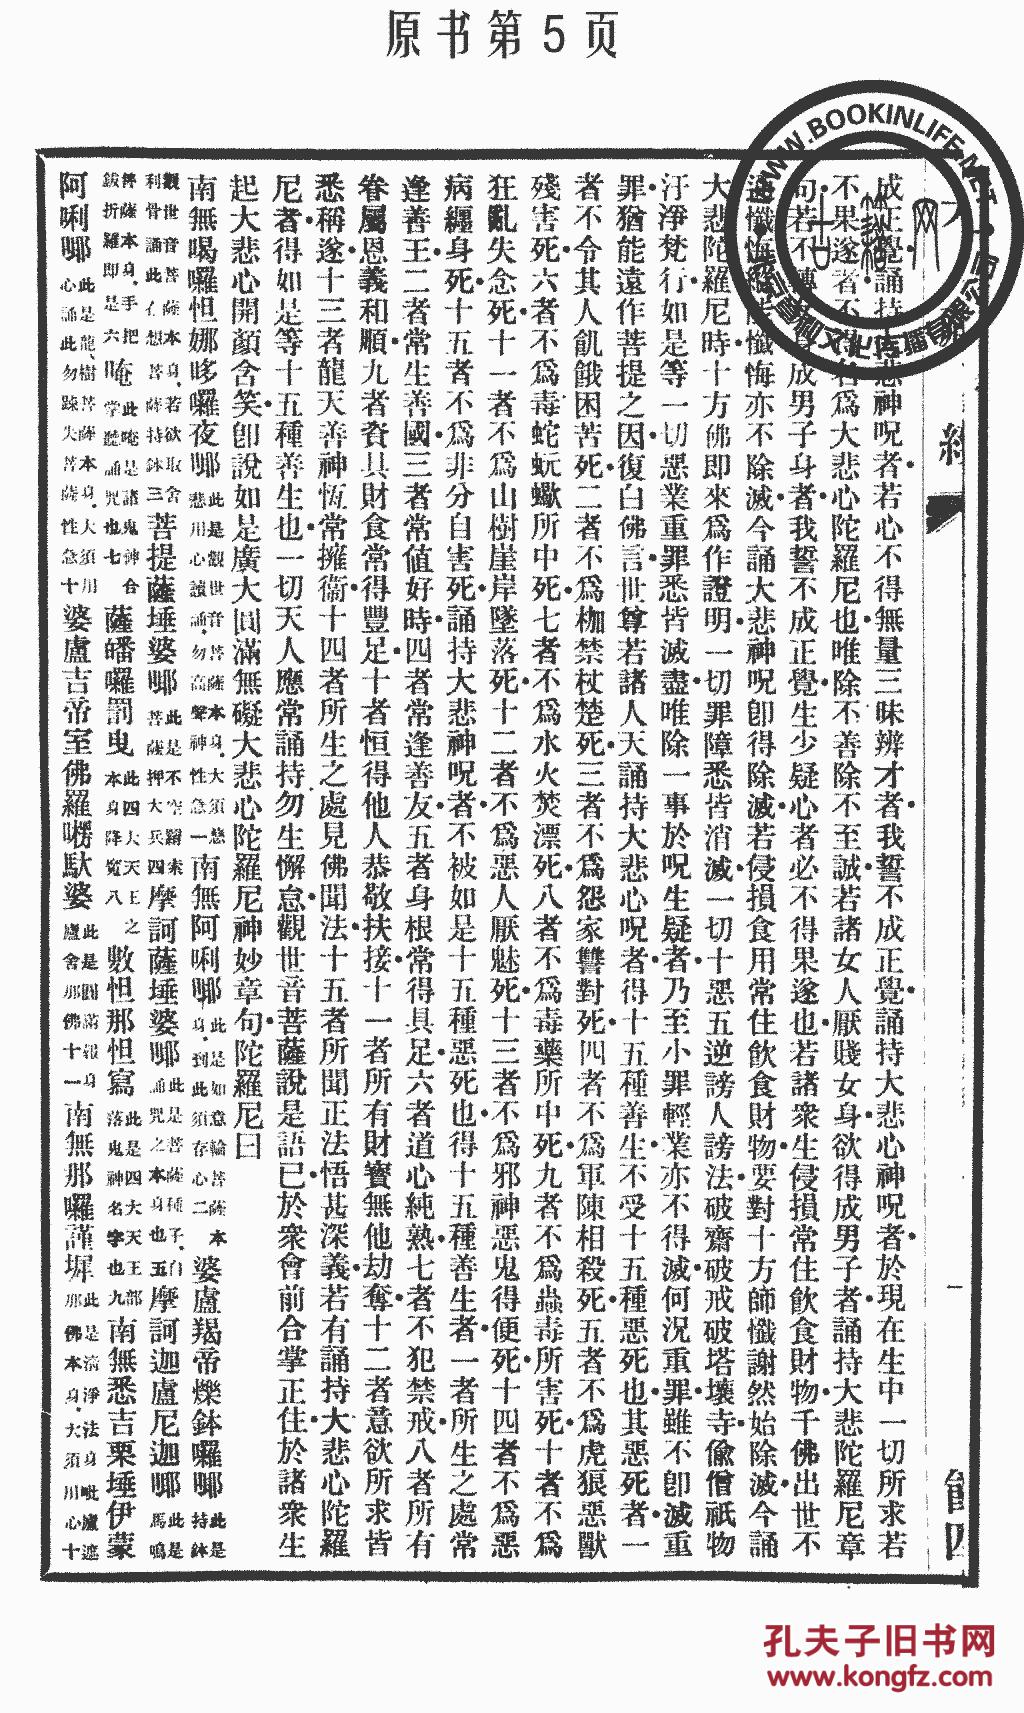 原书第5页
成正覺誦持大悲神呪者若心不得無量三昧辨才者我誓不成正覺誦持大悲心神呪者於現在生中一切所求若
不果遂者不得名爲大悲心陀羅尼也唯除不善除不至誠若諸女人厭賤女身欲得成男子者誦持大悲陀羅尼章
句若不轉女身成男子身者我誓不成正覺生少疑心者必不得果遂也若諸衆生侵損常住飮食財物千佛出世不
通懺悔縱懺悔亦不除滅今誦大悲神呪卽得除滅若侵損食用常住飮食財物要對十方師懺謝然始除滅今誦
大悲陀羅尼時十方佛即來爲作證明一切罪障悉皆消滅一切十惡五逆謗人謗法破齋破戒破塔壞寺偸僧祇物
汙淨梵行如是等一切惡業重罪悉皆滅盡唯除一事於呪生疑者乃至小罪輕業亦不得滅何況重罪雖不卽滅重
罪猶能遠作菩提之因復白佛言世尊若諸人天誦持大悲心呪者得十五種善生不受十五種惡死也其惡死者一
者不令其人飢餓困苦死二者不爲枷禁杖楚死三者不爲怨家讐對死四者不爲軍陳相殺死五者不爲虎狼惡獸
殘害死六者不爲毒蛇蚖蠍所中死七者不爲水火焚漂死八者不爲毒藥所中死九者不爲蟲毒所害死十者不爲
狂亂失念死十一者不爲山樹崖岸墜落死十二者不爲惡人厭魅死十三者不爲邪神惡鬼得便死十四者不爲惡
病纏身死十五者不爲非分自害死誦持大悲神呪者不被如是十五種惡死也得十五種善生者一者所生之處常
逢善王二者常生善國三者常値好時四者常逢善友五者身根常得具足六者道心純熟七者不犯禁戒八者所有
眷屬恩義和順九者資具財食常得豐足十者恒得他人恭敬扶接十一者所有財寶無他劫奪十二者意欲所求皆
悉稱遂十三者龍天善神恆常擁衞十四者所生之處見佛聞法十五者所聞正法悟甚深義若有誦持大悲心陀羅
尼者得如是等十五種善生也一切天人應常誦持勿生懈怠觀世音菩薩說是語已於衆會前合掌正住於諸衆生
起大悲心開顏含笑卽說如是廣大圓滿無礙大悲心陀羅尼神妙章句陀羅尼曰
南無喝囉怛娜哆囉夜㖿此是觀世音菩薩本身大須慈悲用心讀誦勿高聲神性急一南無阿唎㖿此是如意輪菩薩本身到此須存心二婆盧羯帝爍鉢囉㖿此是持鉢
觀世音菩薩本身若欲取舍利骨誦此存想菩薩持鉢三菩提薩埵婆㖿此是不空羂索菩薩押大兵四摩訶薩埵婆㖿此是菩薩種子自誦咒之本身也五摩訶迦盧尼迦㖿此是馬鳴
菩薩本身手把鈸折羅即是六唵此唵是諸鬼神合掌聽誦咒也七薩皤囉罰曳此四大天王之本身降魔八數怛那怛寫此是四大天王部落鬼神名字也九南無悉吉栗埵伊蒙
阿唎㖿此是龍樹菩薩本身大須用心誦此勿踈失菩薩性急十婆盧吉帝室佛羅㘄馱婆此是圓滿報身盧舍那佛十一南無那囉謹墀此是淸淨法身毗盧遮那佛本身大須用心十
WWW.BOOKINLIFE.NET
孔夫子旧书网
www.kongfz.com